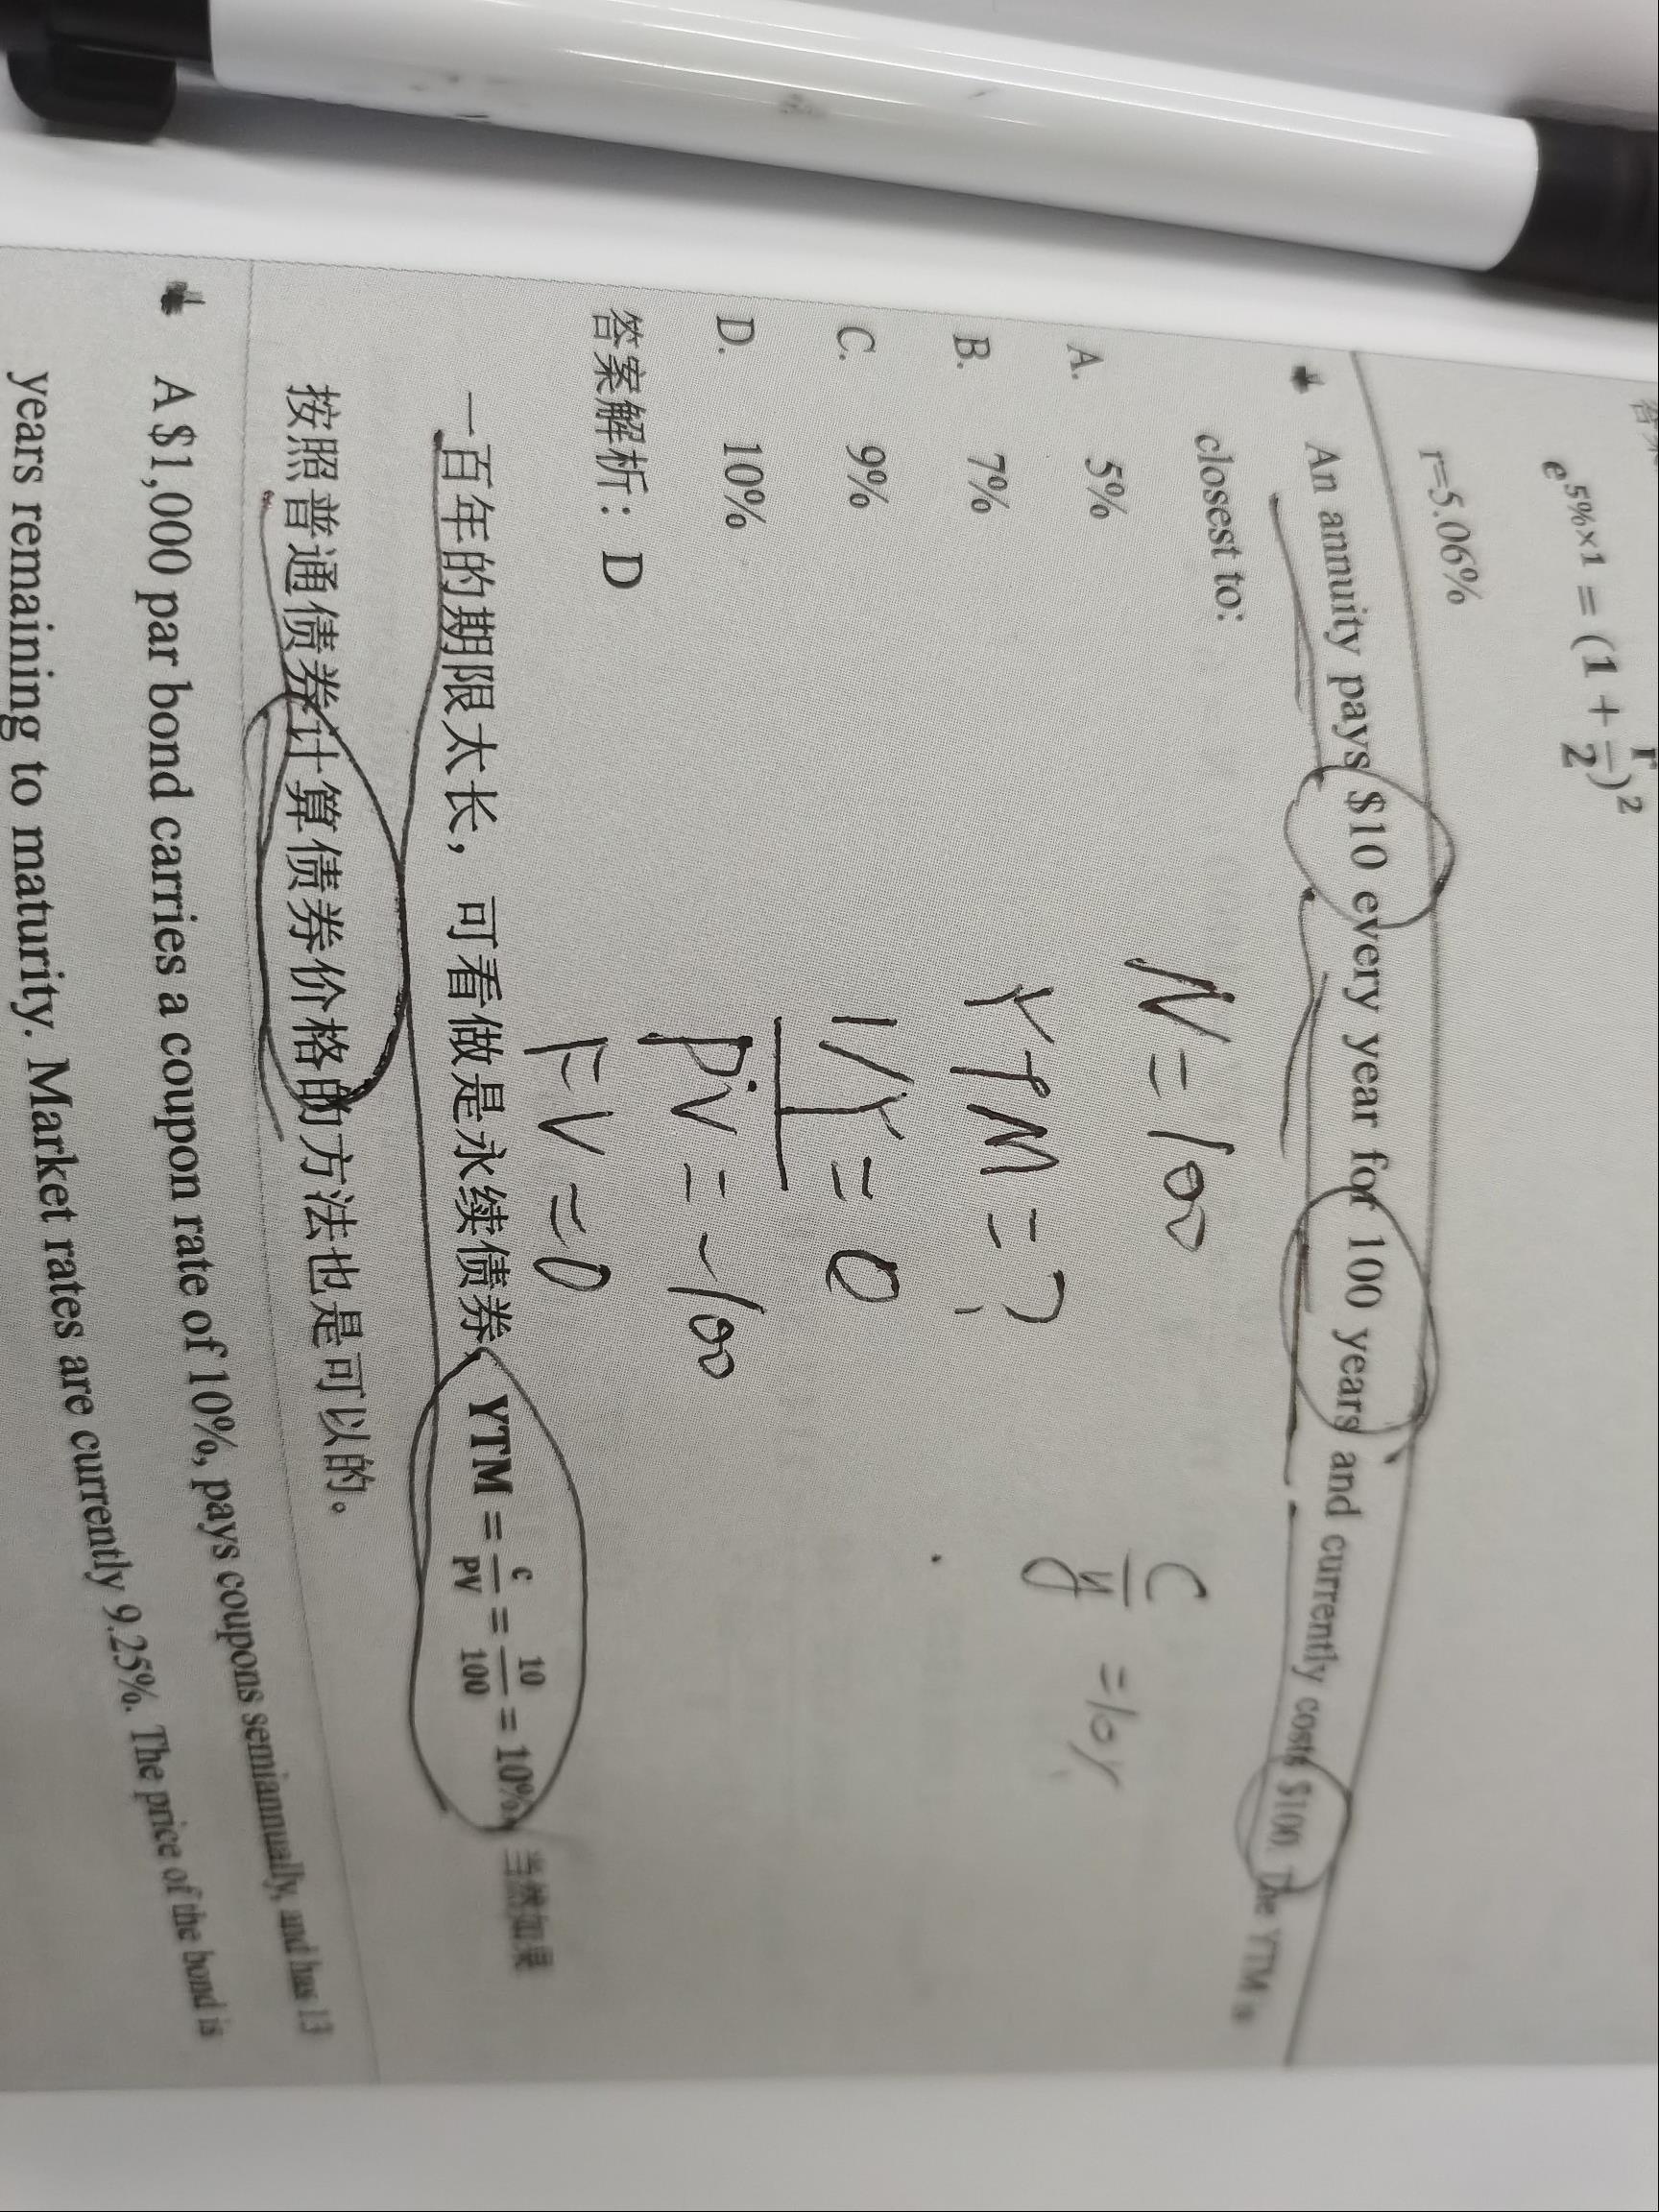 e^{5%×1} = (1 + r/2)^2
r=5.06%
An annuity pays $10 every year for 100 years and currently costs $100. The YTM is
closest to:
A. 5%
B. 7%
C. 9%
D. 10%
N = 100
YTM = ?
I/Y = 0
PV = -100
FV = 0
C/y = 10%
答案解析：D
一百年的期限太长，可看做是永续债券，YTM = c/PV = 10/100 = 10%，当然如果
按照普通债券计算债券价格的方法也是可以的。
A $1,000 par bond carries a coupon rate of 10%, pays coupons semiannually, and has 13
years remaining to maturity. Market rates are currently 9.25%. The price of the bond is